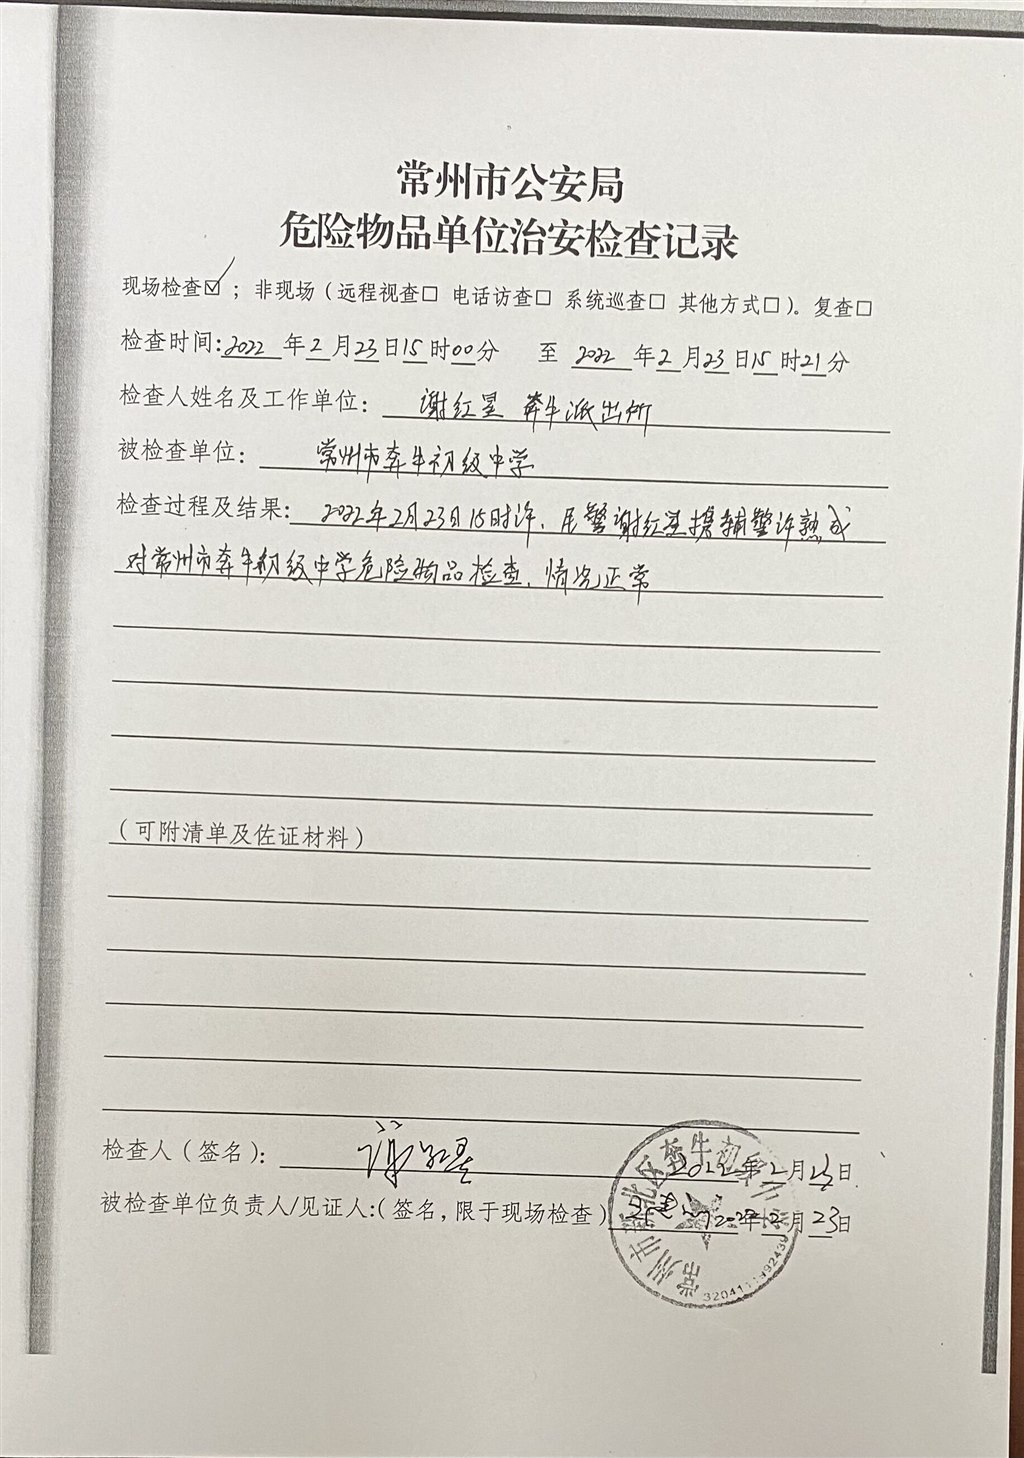 常州市公安局
危险物品单位治安检查记录
现场检查☑；非现场（远程视查□ 电话访查□ 系统巡查□ 其他方式□）。复查□
检查时间：2022年2月23日15时00分 至 2022年2月23日15时21分
检查人姓名及工作单位：谢红星 奔牛派出所
被检查单位：常州市奔牛初级中学
检查过程及结果：2022年2月23日15时许，民警谢红星携辅警许熟成
对常州市奔牛初级中学危险物品检查，情况正常
（可附清单及佐证材料）
检查人（签名）：谢红星 2022年2月23日
被检查单位负责人/见证人：（签名，限于现场检查）2022年2月23日
常州市新北区奔牛初级中学